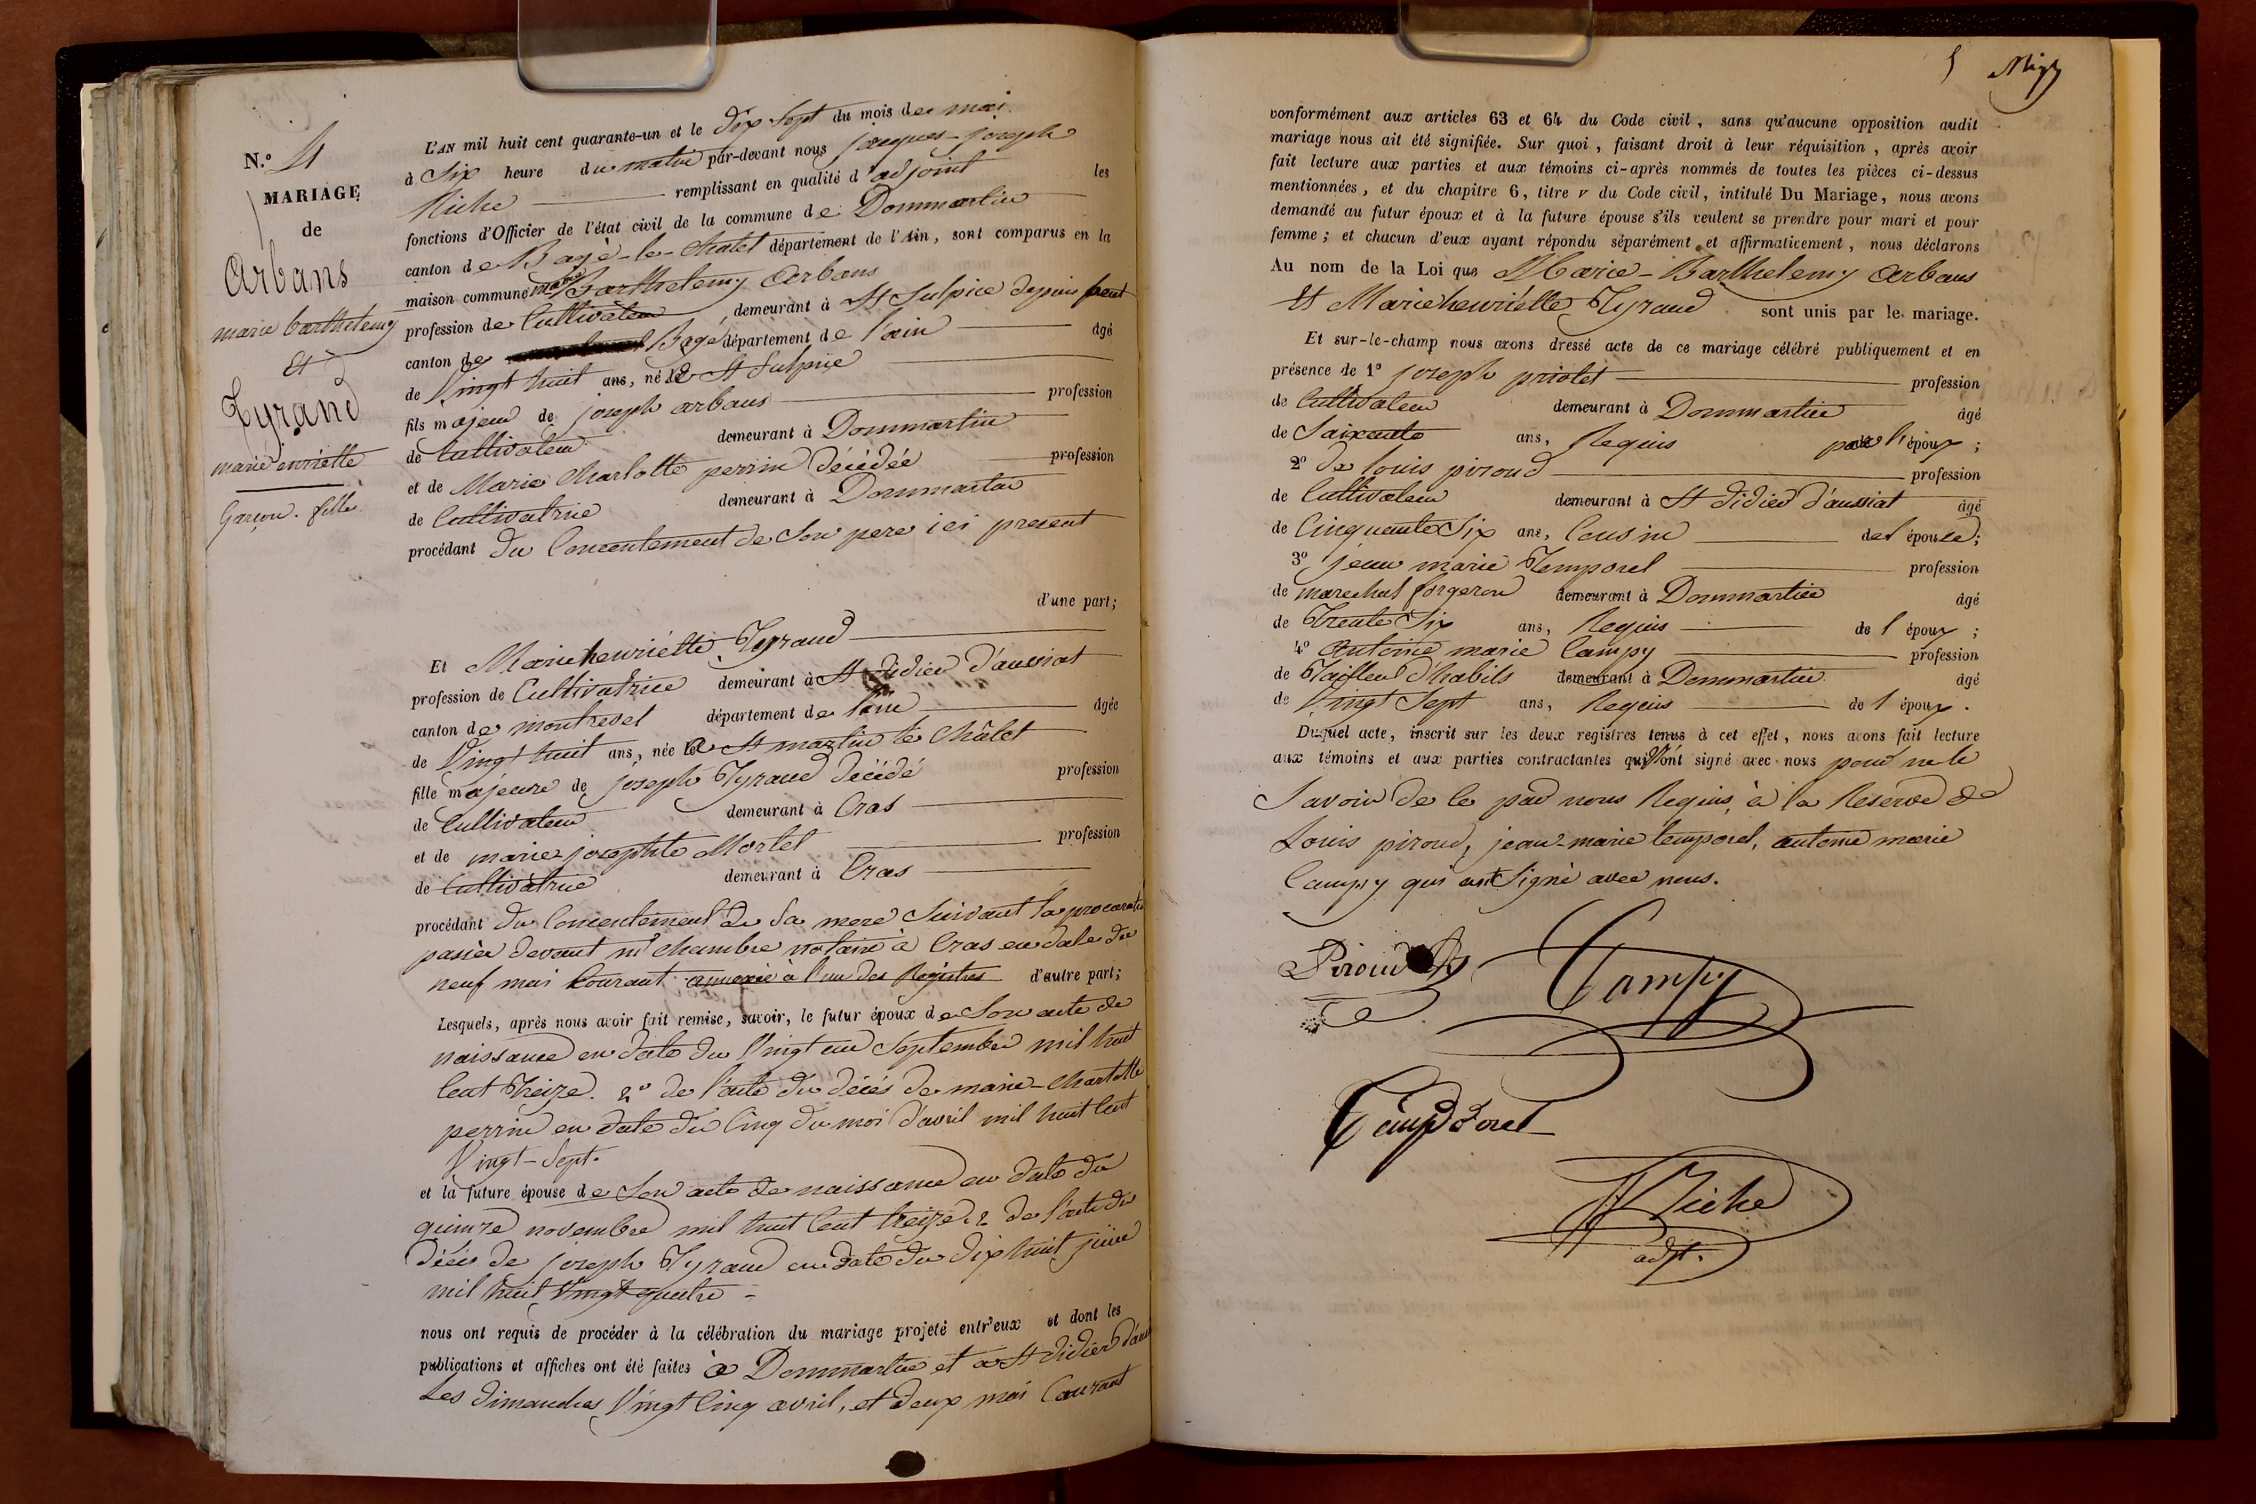 N.º 4
MARIAGE
de
Arbans
marie barthelemy
Et
Tyrand
marie enriette
Garçon. fille
L'AN mil huit cent quarante-un et le dix Sept du mois de mai
à Six heure du matin par-devant nous jacques-joseph
Niche remplissant en qualité d'adjoint les
fonctions d'Officier de l'état civil de la commune de Dommartin
canton de Bagé-le-Chatel département de l'Ain, sont comparus en la
maison commune marie Barthelemy Arbans
profession de Cultivateur, demeurant à St Sulpice depuis peut
canton de Bagé département de l'ain âgé
de Vingt huit ans, né à St Sulpice
fils majeur de joseph arbans profession
de Cultivateur demeurant à Dommartin
et de Marie Charlotte perrin décédée profession
de Cultivatrice demeurant à Dommartin
procédant du Concentement de Son pere ici present
d'une part;
Et Marie henriétte Tyraud
profession de Cultivatrice demeurant à St didier d'aussiat
canton de montrevel département de l'ain âgée
de Vingt huit ans, née à St martin le Châtel
fille majeure de joseph Tyraud décédé profession
de Cultivateur demeurant à Cras
et de marie josephte Mortel profession
de Cultivatrice demeurant à Cras
procédant du Concentement de Sa mere Suivant la procuration
passée devant me Chambre notaire à Cras en date du
neuf mai Courant annexée à l'un des Registres d'autre part;
Lesquels, après nous avoir fait remise, savoir, le futur époux de Son acte de
naissance en date du Vingt un Septembre mil huit
Cent Treize. 2º de l'acte du décés de marie-Charlotte
perrin en date du Cinq du moi d'avril mil huit Cent
Vingt-Sept.
et la future épouse de Son acte de naissance en date du
quinze novembre mil huit Cent treize. 2 de l'acte du
décés de joseph Tyraud en date du dix huit juin
mil huit Vingt quatre -
nous ont requis de procéder à la célébration du mariage projeté entr'eux et dont les
publications et affiches ont été faites à Dommartin et a St didier d'aus
Les dimanches Vingt Cinq avril, et deux mai Courant
5
conformément aux articles 63 et 64 du Code civil, sans qu'aucune opposition audit
mariage nous ait été signifiée. Sur quoi, faisant droit à leur réquisition, après avoir
fait lecture aux parties et aux témoins ci-après nommés de toutes les pièces ci-dessus
mentionnées, et du chapitre 6, titre V du Code civil, intitulé Du Mariage, nous avons
demandé au futur époux et à la future épouse s'ils veulent se prendre pour mari et pour
femme; et chacun d'eux ayant répondu séparément et affirmativement, nous déclarons
Au nom de la Loi que Marie-Barthelemy Arbans
Et Marie henriétte Tyraud sont unis par le mariage.
Et sur-le-champ nous avons dressé acte de ce mariage célébré publiquement et en
présence de 1º joseph priolet profession
de Cultivateur demeurant à Dommartin âgé
de Saixante ans, Requis par l'époux;
2º de Louis piroud profession
de Cultivateur demeurant à St didier d'aussiat âgé
de Cinquante Six ans, Cousin de l'épouse;
3º jean marie Temporel profession
de marechal forgeron demeurant à Dommartin âgé
de Trente Six ans, Requis de l'époux;
4º Antoine marie Campy profession
de Tailleur d'habits demeurant à Dommartin âgé
de Vingt Sept ans, Requis de l'époux.
Duquel acte, inscrit sur les deux registres tenus à cet effet, nous avons fait lecture
aux témoins et aux parties contractantes qui n'ont signé avec nous pour ne le
Savoir de ce par nous Requis, à la Réserve de
Louis piroud, jean-marie temporel, antoine marie
Campy qui ont Signé avec nous.
Piroud
Campy
Temporel
Niche
adjt.